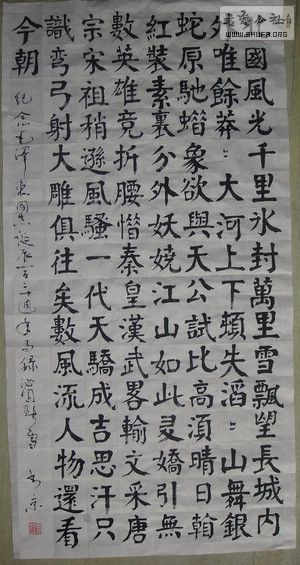 國風光千里氷封萬里雪飄望長城内
外唯餘莽〻大河上下頓失滔〻山舞銀
蛇原馳蠟象欲與天公試比高須晴日
紅裝素裹分外妖嬈江山如此多嬌引無
數英雄竞折腰惜秦皇漢武畧輸文采唐
宗宋祖稍遜風騷一代天驕成吉思汗只
識彎弓射大雕俱往矣數風流人物還看
今朝
紀念毛澤東同志誕辰百二十周年
WWW.SHUFA.ORG